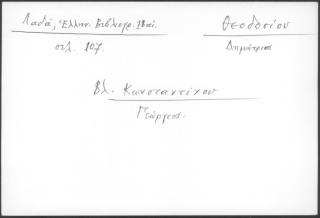 Λαδά, Ἑλλην. Βιβλιογρ. 18 αἰ.
σελ. 107.
Θεοδοσίου
Δημήτριος
Βλ. Κωνσταντίνου
Γεώργιος.